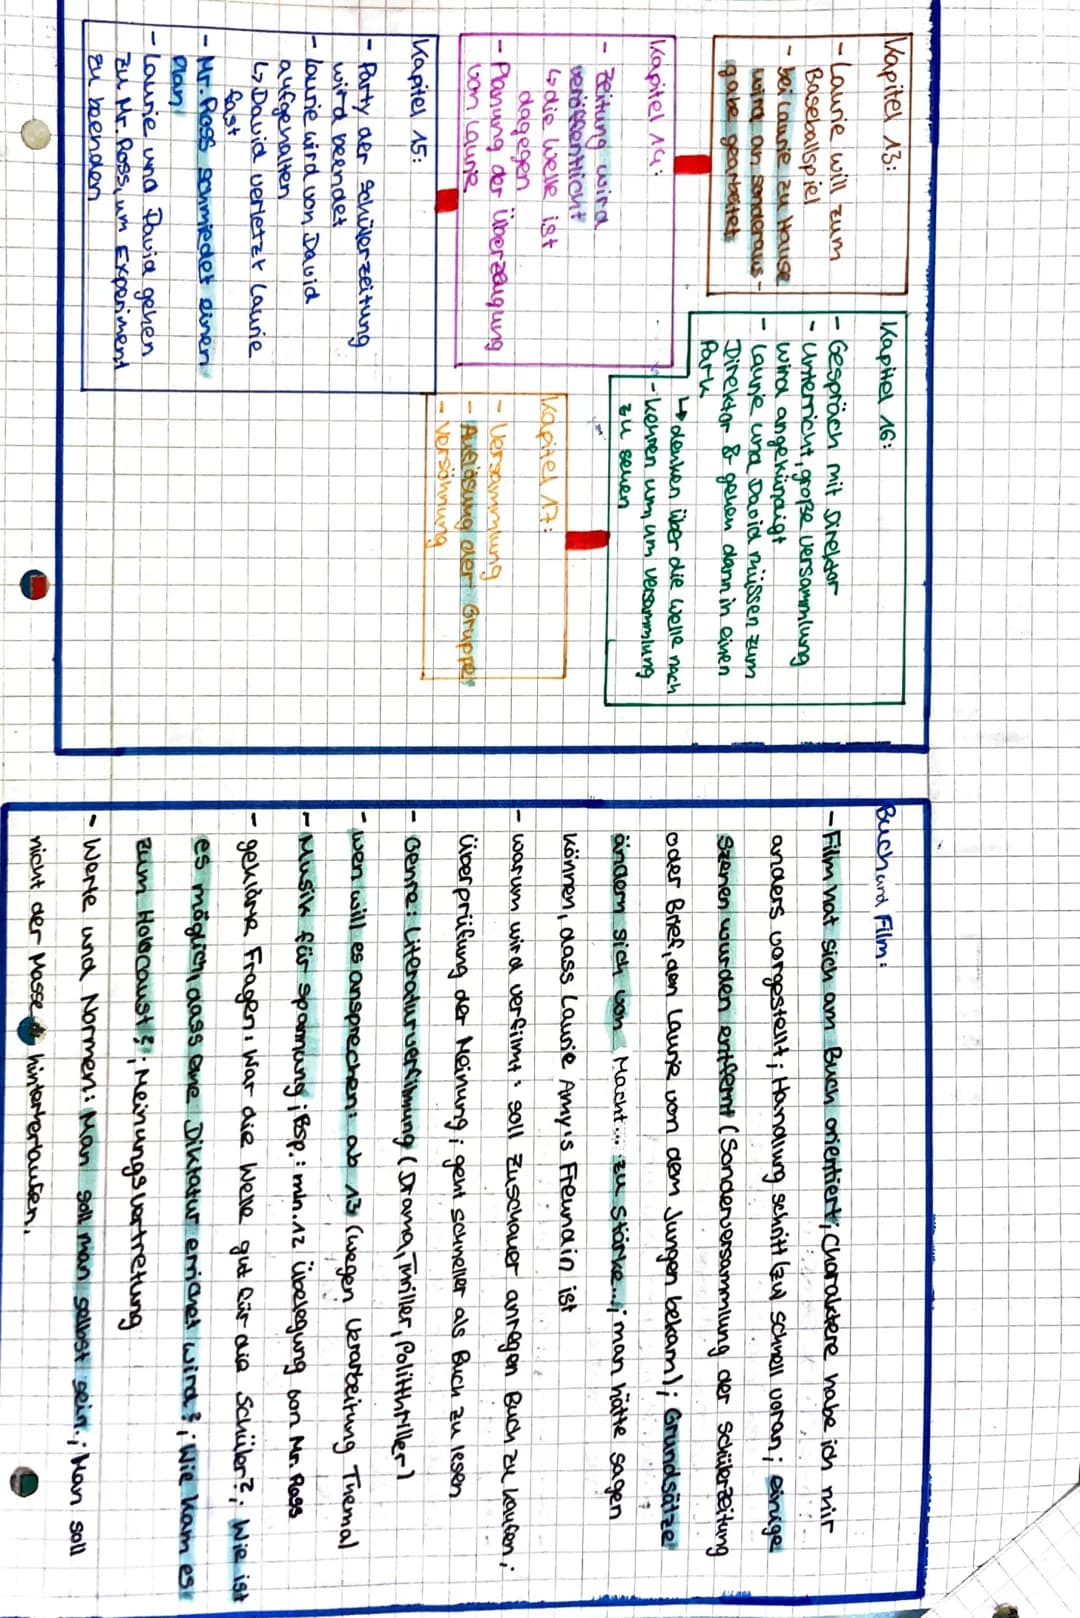 Kapitel 13:
- Laurie will zum
Baseballspiel
- bei Laurie zu Hause
wird an Sonderaus-
gabe gearbeitet
Kapitel 14:
- Zeitung wird
veröffentlicht
↳ die Welle ist
dagegen
- Planung der Überzeugung
von Laurie
Kapitel 15:
- Party der Schülerzeitung
wird beendet
- Laurie wird von David
aufgehalten
↳ David verletzt Laurie
fast
- Mr. Ross schmiedet einen
Plan
- Laurie und David gehen
zu Mr. Ross, um Experiment
zu beenden
Kapitel 16:
- Gespräch mit Direktor
- Unterricht, große Versammlung
wird angekündigt
- Laurie und David müssen zum
Direktor & gehen dann in einen
Park
↳ denken über die Welle nach
- kehren um, um Versammlung
zu sehen
Kapitel 17:
- Versammlung
- Auflösung der Gruppe
- Versöhnung
Buch und Film:
- Film hat sich am Buch orientiert; Charaktere habe ich mir
anders vorgestellt; Handlung schritt (zu) schnell voran; einige
Szenen wurden entfernt (Sonderversammlung der Schülerzeitung
oder Brief, den Laurie von dem Jungen bekam); Grundsätze
ändern sich von Macht... zu Stärke...; man hätte sagen
können, dass Laurie Amy's Freundin ist
- warum wird verfilmt: soll Zuschauer anregen Buch zu kaufen;
Überprüfung der Meinung; geht schneller als Buch zu lesen
- Genre: Literaturverfilmung (Drama, Thriller, Politthriller)
- wen will es ansprechen: ab 13 (wegen Verarbeitung Thema)
- Musik für Spannung; Bsp.: min. 12 Übelegung von Mr. Ross
- geklärte Fragen: War die Welle gut für die Schüler?; Wie ist
es möglich, dass eine Diktatur errichtet wird?; Wie kam es
zum Holocaust?; Meinungsvertretung
- Werte und Normen: Man soll man selbst sein.; Man soll
nicht der Masse hinterherlaufen.